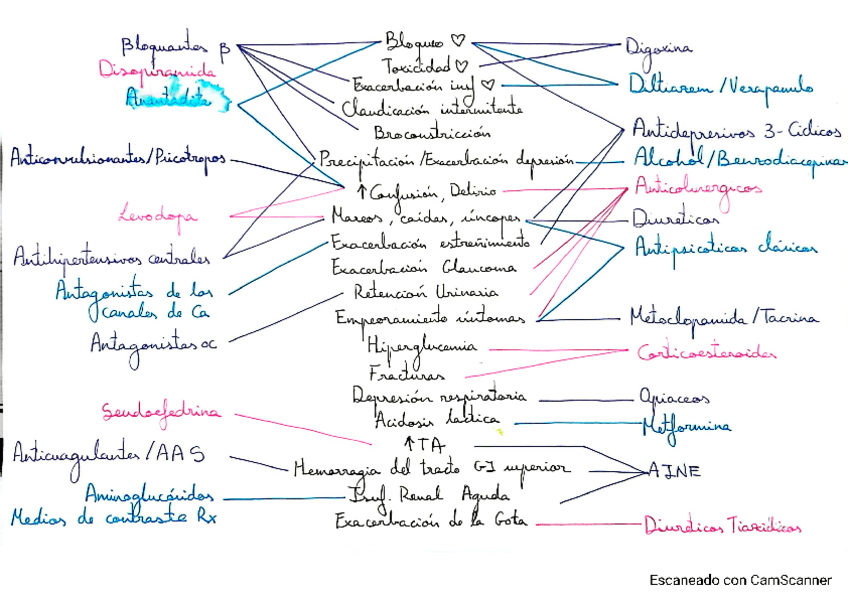 Bloqueantes β
Disopiramida
Anticonvulsionantes/Psicotropos
Levodopa
Antihipertensivos centrales
Antagonistas de los
canales de Ca
Antagonistas α
Seudoefedrina
Anticoagulantes/AAS
Aminoglucósidos
Medios de contraste Rx
Bloqueo ♡
Toxicidad ♡
Exacerbación insf ♡
Claudicación intermitente
Broconstricción
Precipitación/Exacerbación depresión
↑ Confusión, Delirio
Mareos, caídas, síncopes
Exacerbación estreñimiento
Exacerbación Glaucoma
Retención Urinaria
Empeoramiento síntomas
Hiperglucemia
Fracturas
Depresión respiratoria
Acidosis láctica
↑TA
Hemorragia del tracto G-I superior
Insuf. Renal Aguda
Exacerbación de la Gota
Digoxina
Diltiazem/Verapamilo
Antidepresivos 3-Cíclicos
Alcohol/Benzodiacepinas
Anticolinérgicos
Diuréticos
Antipsicóticos clásicos
Metoclopamida/Tacrina
Corticoesteroides
Opiaceos
Metformina
AINE
Diuréticos Tiazídicos
Escaneado con CamScanner